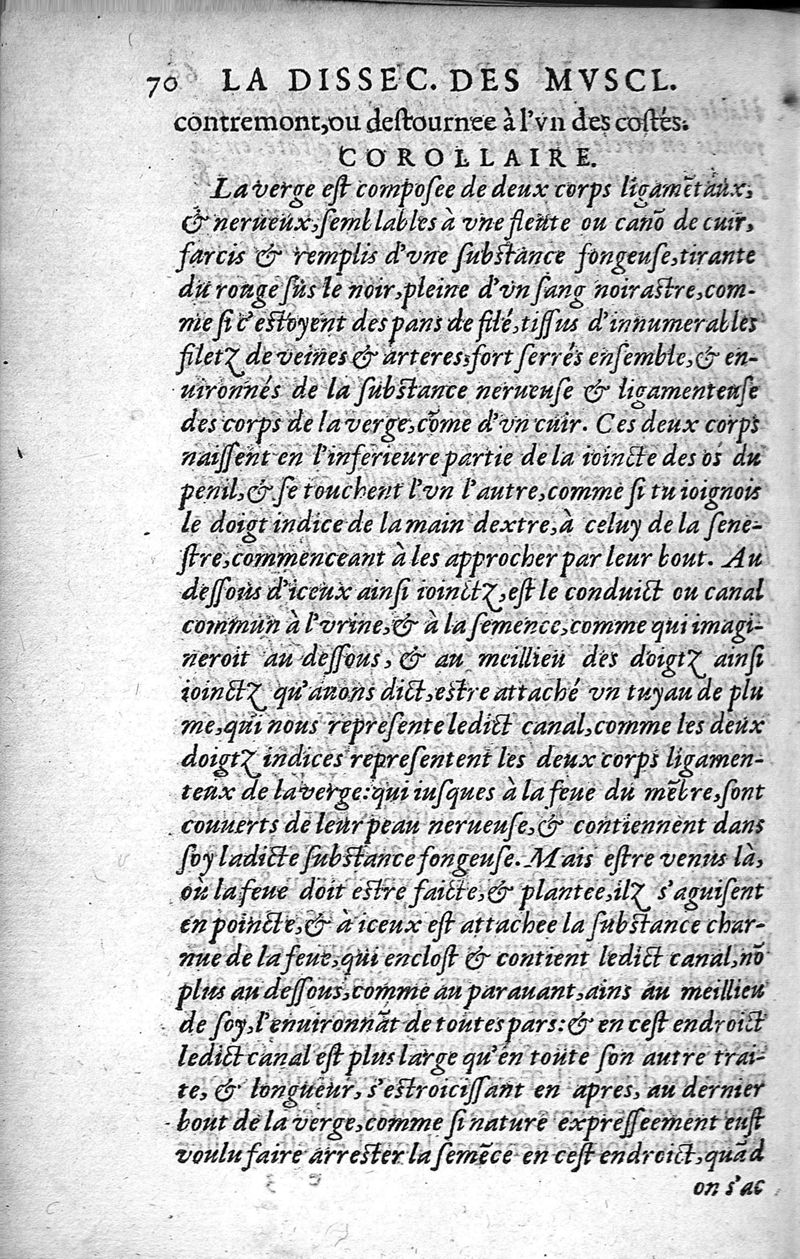 70 LA DISSEC. DES MVSCL.
contremont, ou destournee à l'vn des costés.
COROLLAIRE.
La verge est composee de deux corps ligamẽtaux,
& nerueux, semblables à vne fleute ou canõ de cuir,
farcis & remplis d'vne substance fongeuse, tirante
du rouge sus le noir, pleine d'vn sang noirastre, com-
me si c'estoyent des pans de filé, tissus d'innumerables
filetz de veines & arteres, fort serrés ensemble, & en-
uironnés de la substance nerueuse & ligamenteuse
des corps de la verge, cõme d'vn cuir. Ces deux corps
naissent en l'inferieure partie de la ioincte des os du
penil, & se touchent l'vn l'autre, comme si tu ioignois
le doigt indice de la main dextre, à celuy de la sene-
stre, commenceant à les approcher par leur bout. Au
dessous d'iceux ainsi ioinctz, est le conduict ou canal
commun à l'vrine, & à la semence, comme qui imagi-
neroit au dessous, & au meillieu des doigtz ainsi
ioinctz qu'auons dict, estre attaché vn tuyau de plu
me, qui nous represente ledict canal, comme les deux
doigtz indices representent les deux corps ligamen-
teux de la verge: qui iusques à la feue du mẽbre, sont
couuerts de leur peau nerueuse, & contiennent dans
soy ladicte substance fongeuse. Mais estre venus là,
où la feue doit estre faicte, & plantee, ilz s'aguisent
en poincte, & à iceux est attachee la substance char-
nue de la feue, qui enclost & contient ledict canal, nõ
plus au dessous, comme au parauant, ains au meillieu
de soy, l'enuironnãt de toutes pars: & en cest endroict
ledict canal est plus large qu'en toute son autre trai-
te, & longueur, s'estroicissant en apres, au dernier
bout de la verge, comme si nature expresseement eust
voulu faire arrester la semẽce en cest endroict, quãd
on s'ac